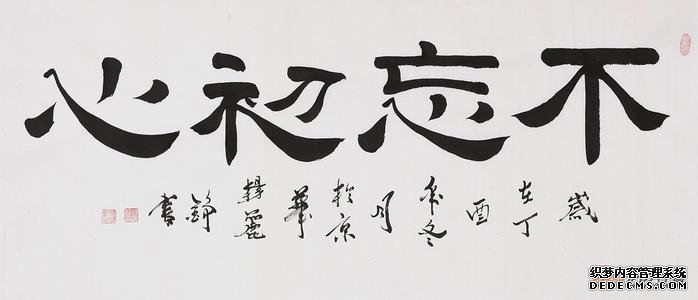 不忘初心
歲在丁酉年冬月於京華楊麗錚書
织梦内容管理系统
DEDECMS.COM